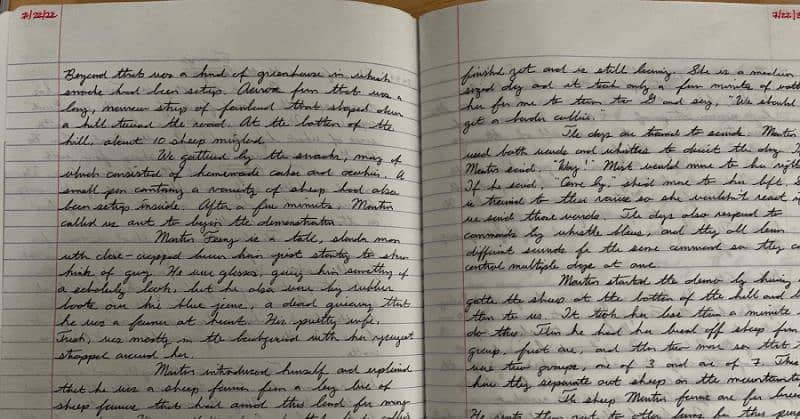 7/22/22
Beyond that was a kind of greenhouse in which
snacks had been setup. Across from that was a
long, narrow strip of farmland that sloped down
a hill toward the road. At the bottom of the
hill, about 10 sheep mingled.
We gathered by the snacks, many of
which consisted of homemade cakes and cookies. A
small pen containing a variety of sheep had also
been setup inside. After a few minutes, Martin
called us out to begin the demonstration
Martin Feeney is a tall, slender man
with close-cropped brown hair just starting to show
hints of grey. He wore glasses, giving him something of
a scholarly look, but he also wore big rubber
boots over his blue jeans, a dead giveaway that
he was a farmer at heart. His pretty wife,
was mostly in the background with her youngest
strapped around her.
Martin introduced himself and explained
that he was a sheep farmer from a long line of
sheep farmers that had around this land for many
7/22/2
finished yet and is still learning. She is a medium
sized dog and it took only a few minutes of
her for me to turn to G and say, "We should
get a border collie."
The dogs are trained to sounds. Martin
used both words and whistles to direct the dog.
Martin said, "Way!" Mist would move to her right
If he said, "Come by," she'd move to her left.
is trained to their voices so she wouldn't react
we said those words. The dogs also respond to
commands by whistle blows, and they all learn
different sounds for the same command so they
control multiple dogs at once.
Martin started the demo by having
gather the sheep at the bottom of the hill and
them to us. It took her less than a minute
do this. Then he had her break off sheep from
group, first one, and then two more so that
were two groups, one of 3 and one of 7. This
how they separate out sheep on the mountain
The sheep Martin farms are for
He sells them out to other farms for this